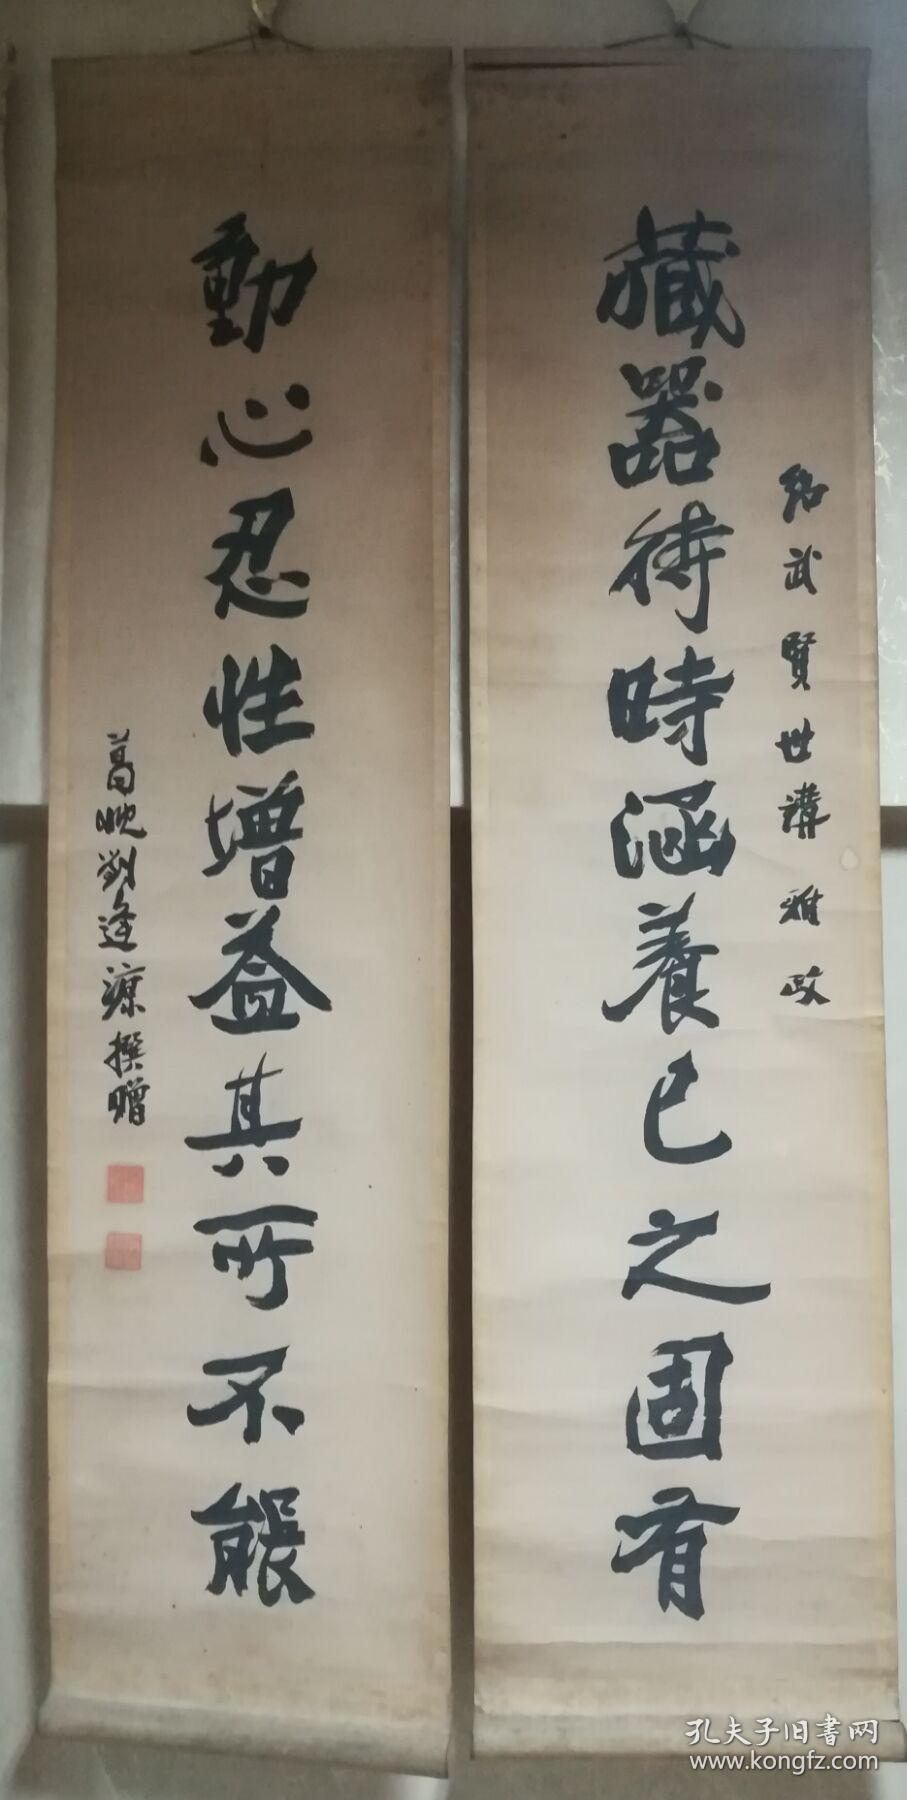 紹武賢世講雅政
藏器待時涵養己之固有
動心忍性增益其所不能
葛晚劉逢源撰贈
孔夫子旧书网
www.kongfz.com